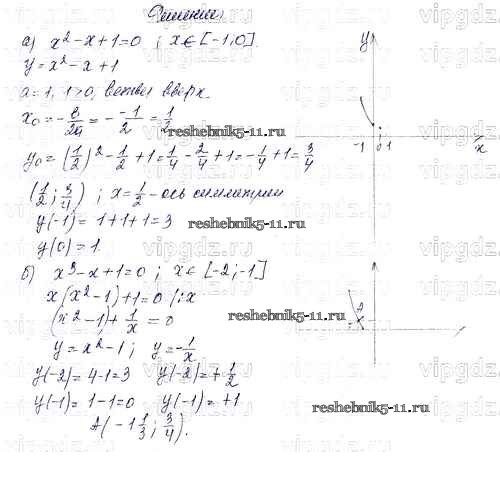 Решение.
а) x² - x + 1 = 0 ; x ∈ [-1, 0].
y = x² - x + 1
a = 1, 1 > 0, ветви вверх.
x₀ = -в/2a = - -1/2 = 1/2
y₀ = (1/2)² - 1/2 + 1 = 1/4 - 2/4 + 1 = -1/4 + 1 = 3/4
(1/2 ; 3/4) ; x = 1/2 - ось симметрии
y(-1) = 1 + 1 + 1 = 3
y(0) = 1.
б) x³ - x + 1 = 0 ; x ∈ [-2; -1]
x(x² - 1) + 1 = 0 /: x
(x² - 1) + 1/x = 0
y = x² - 1 ; y = -1/x
y(-2) = 4 - 1 = 3 y(-2) = + 1/2
y(-1) = 1 - 1 = 0 y(-1) = +1
A(-1 1/3 ; 3/4).
y
-1 0 1
x
reshebnik5-11.ru
reshebnik5-11.ru
reshebnik5-11.ru
reshebnik5-11.ru
vipgdz.ru